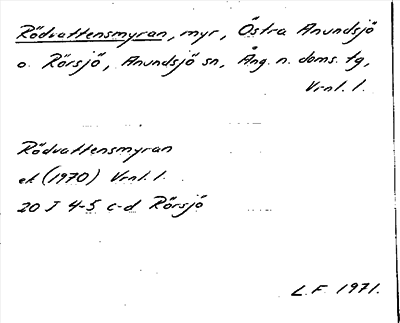 Rödvattensmyran, myr, Östra Anundsjö
o. Rörsjö, Anundsjö sn, Ång. n. doms. tg,
Vrnl. l.
Rödvattensmyran
ek (1970) Vrnl. l.
20 I 4-5 c-d Rörsjö
L.F. 1971.